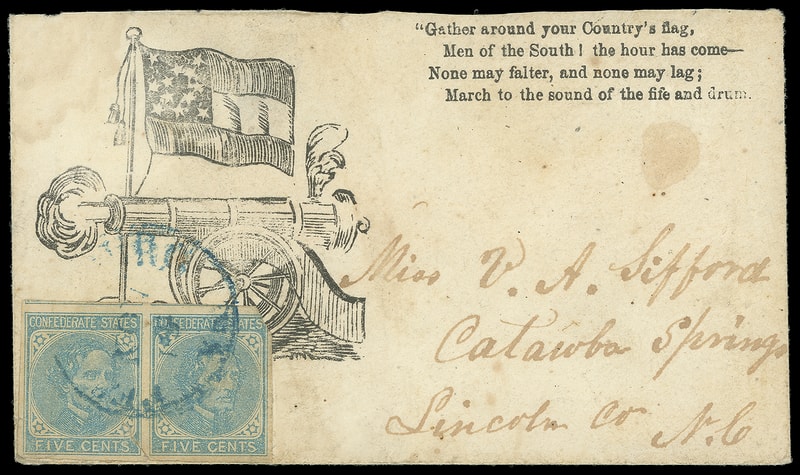 "Gather around your Country's flag,
Men of the South! the hour has come—
None may falter, and none may lag;
March to the sound of the fife and drum.
Miss V. A. Sifford
Catawba Springs
Lincoln Co N.C
CONFEDERATE STATES
FIVE CENTS
CONFEDERATE STATES
FIVE CENTS